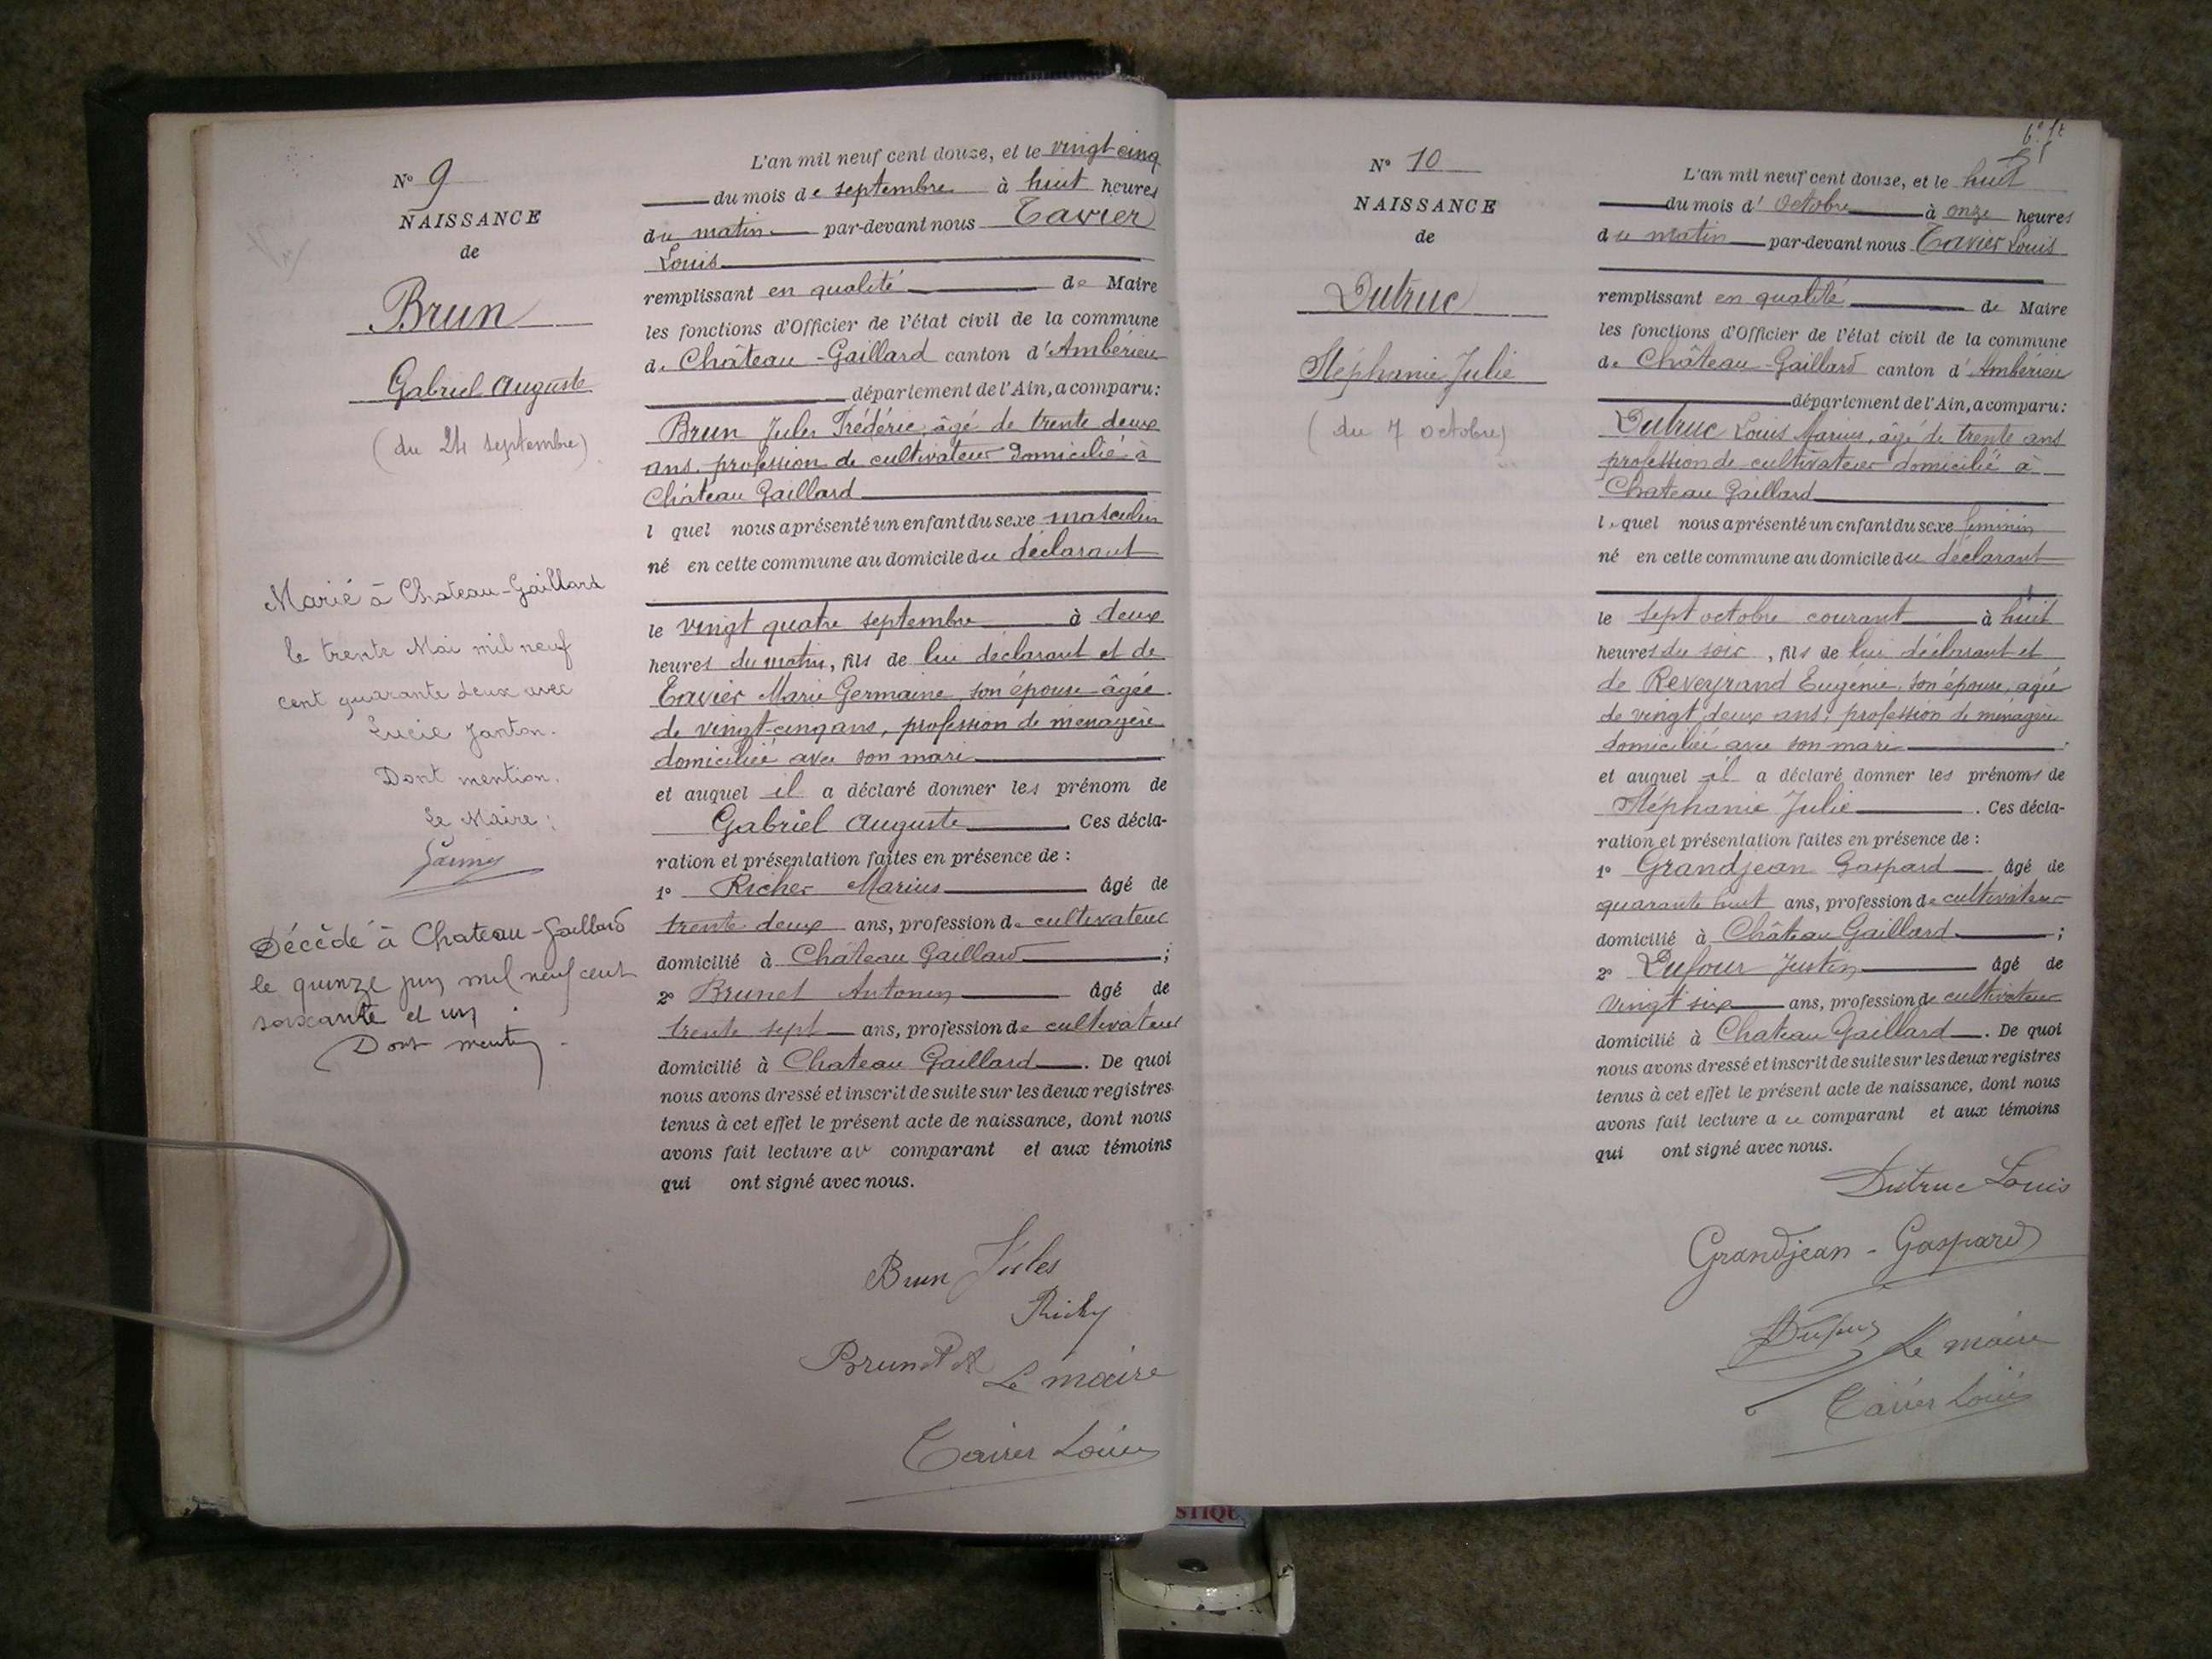 N° 9
NAISSANCE
de
Brun
Gabriel Auguste
(du 24 septembre)
Marié à Chateau-Gaillard
le trente Mai mil neuf
cent quarante deux avec
Lucie Janton.
Dont mention.
Le Maire:
Décédé à Chateau-Gaillard
le quinze juin mil neuf cent
soixante et un.
Dont mention.
L'an mil neuf cent douze, et le vingt cinq
du mois de septembre à huit heures
du matin par-devant nous Tavier
Louis
remplissant en qualité de Maire
les fonctions d'Officier de l'état civil de la commune
de Château-Gaillard canton d'Ambérieu
département de l'Ain, a comparu:
Brun Jules Frédéric, âgé de trente deux
ans, profession de cultivateur domicilié à
Château Gaillard
l quel nous a présenté un enfant du sexe masculin
né en cette commune au domicile du déclarant
le vingt quatre septembre à deux
heures du matin, fils de lui déclarant et de
Tavier Marie Germaine son épouse âgée
de vingt-cinq ans, profession de ménagère
domiciliée avec son mari
et auquel il a déclaré donner les prénom de
Gabriel Auguste. Ces décla-
ration et présentation faites en présence de :
1° Richer Marius âgé de
trente deux ans, profession de cultivateur
domicilié à Château Gaillard ;
2° Brunet Antonin âgé de
trente sept ans, profession de cultivateur
domicilié à Chateau Gaillard. De quoi
nous avons dressé et inscrit de suite sur les deux registres
tenus à cet effet le présent acte de naissance, dont nous
avons fait lecture au comparant et aux témoins
qui ont signé avec nous.
Brun Jules
Brunet A
Le maire
Tavier Louis
N° 10
NAISSANCE
de
Dutruc
Stéphanie Julie
(du 7 octobre)
L'an mil neuf cent douze, et le huit
du mois d'octobre à onze heures
du matin par-devant nous Tavier Louis
remplissant en qualité de Maire
les fonctions d'Officier de l'état civil de la commune
de Château-Gaillard canton d'Ambérieu
département de l'Ain, a comparu:
Dutruc Louis Marius, âgé de trente ans
profession de cultivateur domicilié à
Chateau Gaillard
lequel nous a présenté un enfant du sexe féminin
né en cette commune au domicile du déclarant
le sept octobre courant à huit
heures du soir, fils de lui déclarant et
de Reveyrand Eugénie, son épouse, agée
de vingt deux ans, profession de ménagère
domiciliée avec son mari
et auquel il a déclaré donner les prénoms de
Stéphanie Julie. Ces décla-
ration et présentation faites en présence de :
1° Grandjean Gaspard âgé de
quarante huit ans, profession de cultivateur
domicilié à Château Gaillard ;
2° Dufour Justin âgé de
vingt six ans, profession de cultivateur
domicilié à Chateau Gaillard. De quoi
nous avons dressé et inscrit de suite sur les deux registres
tenus à cet effet le présent acte de naissance, dont nous
avons fait lecture au comparant et aux témoins
qui ont signé avec nous.
Dutruc Louis
Grandjean - Gaspard
Dufour
Le maire
Tavier Louis
STIQUE